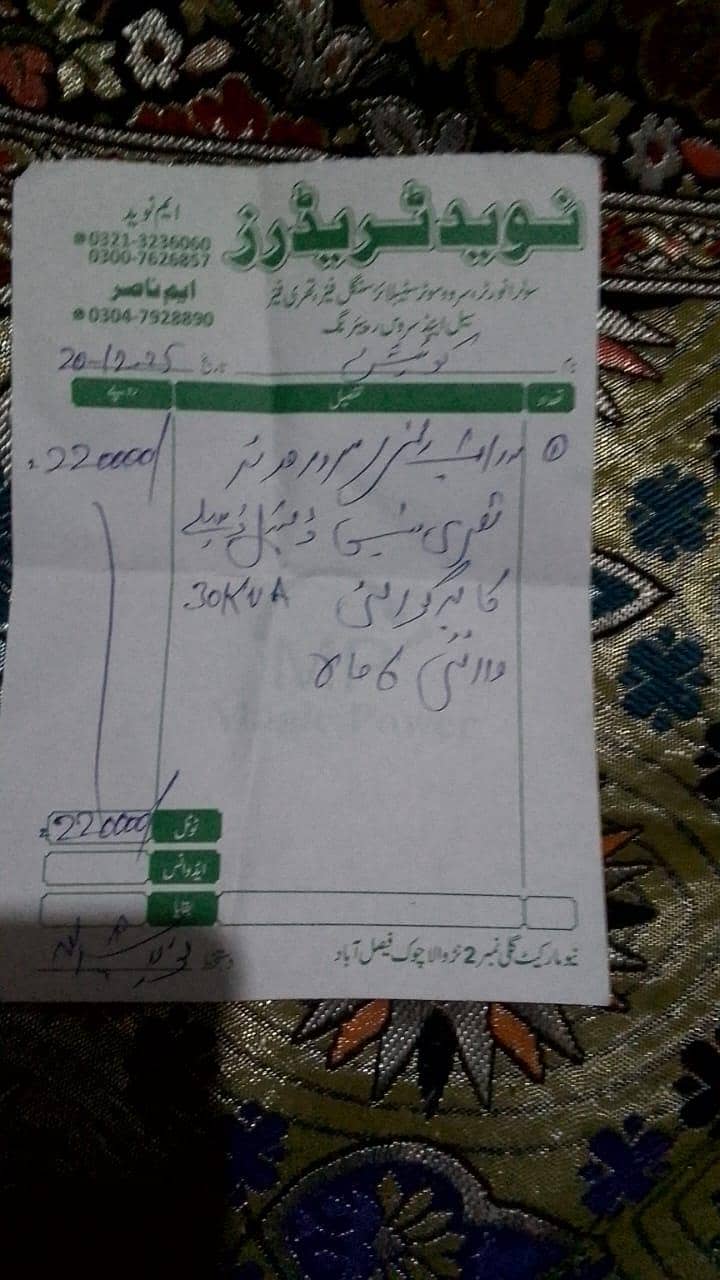 نوید ٹریڈرز
ایم نوید
0321-3236060
0300-7626857
ایم ناصر
0304-7928890
سولر انورٹر، سروو موٹر سٹیبلائزر سنگل فیز، تھری فیز
سیل اینڈ سروس، ریپئرنگ
نام کوٹیشن تاریخ 20-12-25
تعداد تفصیل روپے
① سروو موٹر 220000/
تھری فیز ڈیجیٹل ڈسپلے
30KVA
وارنٹی 6 ماہ
ٹوٹل 220000/
ایڈوانس
بقایا
نیو مارکیٹ گلی نمبر 2 نڑوالا چوک فیصل آباد
دستخط